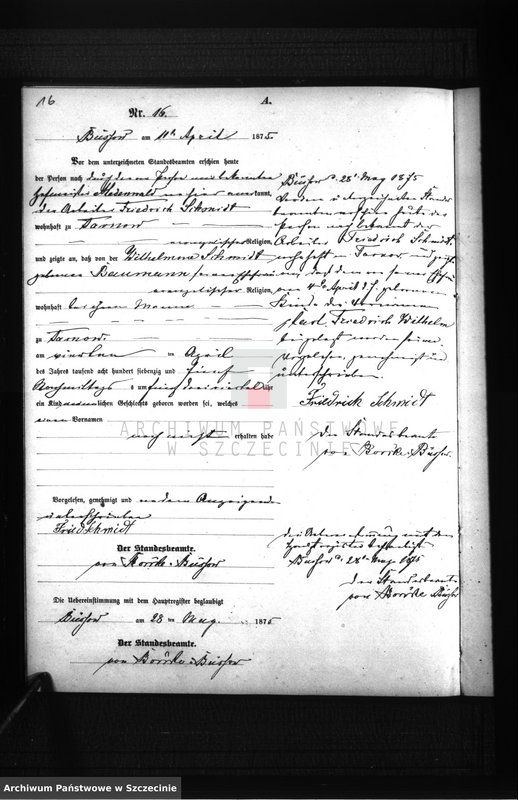 16
A.
Nr. 16.
Büssow am 11ten April 1875.
Vor dem unterzeichneten Standesbeamten erschien heute
der Person nach durch den
Hofmeister anerkannt,
der Arbeiter Friedrich Schmidt
wohnhaft zu Tarnow
evangelischer Religion,
und zeigte an, daß von der Wilhelmine Schmidt
geborenen Baumann
evangelischer Religion,
wohnhaft bei ihrem Manne
zu Tarnow
am vierten im April
des Jahres tausend acht hundert siebenzig und fünf
Nachmittags um fünf dreiviertel Uhr
ein Kind männlichen Geschlechts geboren worden sei, welches
Vornamen
noch nicht erhalten habe
Vorgelesen, genehmigt und von dem Anzeigenden
unterschrieben
Fried Schmidt
Der Standesbeamte.
von Borcke-Büssow
Die Uebereinstimmung mit dem Hauptregister beglaubigt
Büssow am 28 ten May 1875
Der Standesbeamte.
von Borcke-Büssow
Büssow d. 28t May 1875
Arbeiter Friedrich Schmidt
wohnhaft in Tarnow und zeigte
an, daß dem von seiner Ehefrau
am 4ten April geborenen
Kinde die Vornamen
Karl Friedrich Wilhelm
beigelegt worden seien.
Vorgelesen, genehmigt und
unterschrieben.
Friedrich Schmidt
Der Standesbeamte
von Borcke-Büssow.
Die Uebereinstimmung mit dem
Hauptregister beglaubigt
Büssow d. 28t May 1875
Der Standesbeamte
von Borcke Büssow
ARCHIWUM PAŃSTWOWE
W SZCZECINIE
Archiwum Państwowe w Szczecinie